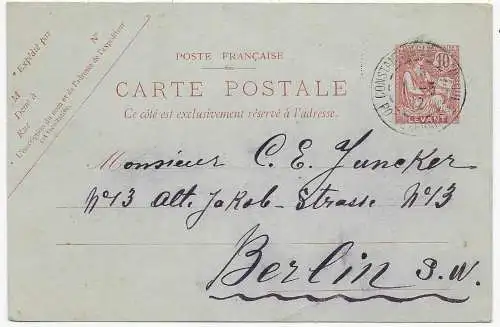 POSTE FRANÇAISE
CARTE POSTALE
Ce côté est exclusivement réservé à l'adresse.
Expédié par
M
Demt à
Rue
N°
L'inscription du nom et de l'adresse de l'expéditeur
est facultative.
10
LEVANT
CONSTAN
Monsieur C. E. Juncker
N°13 Alt. Jakob-Strasse N°13
Berlin S.W.